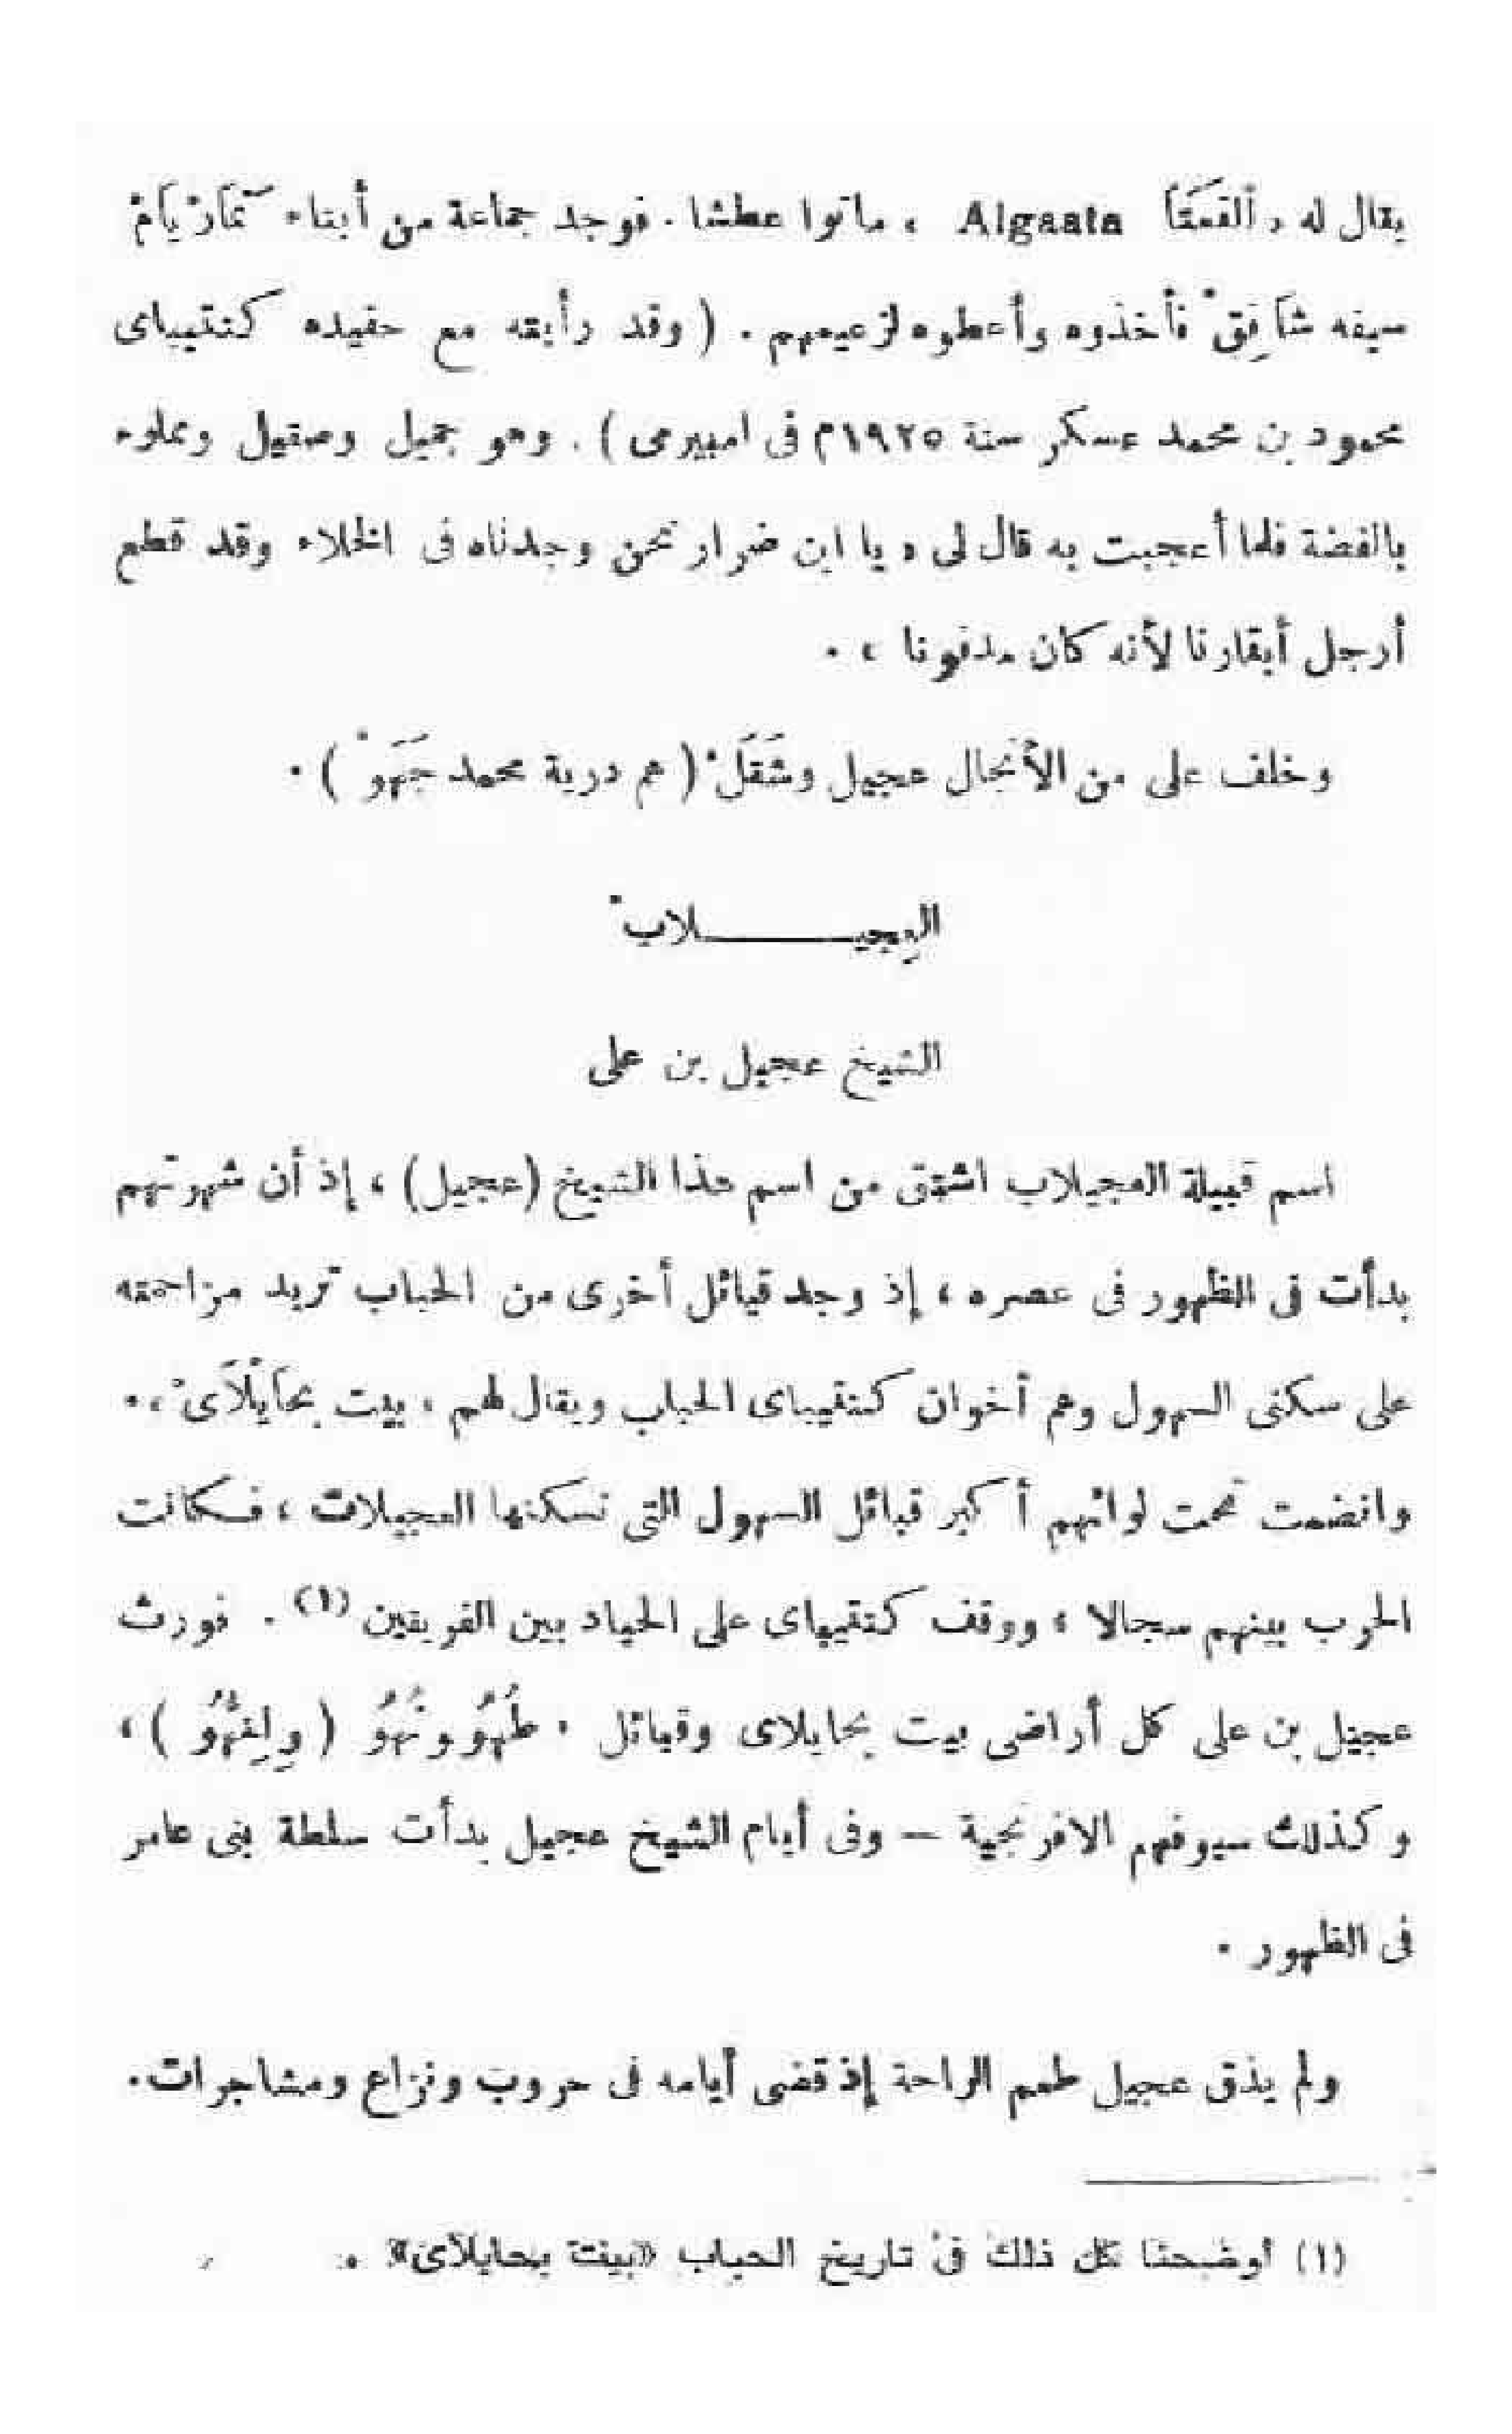 يقال له « ألقعَتَا Algaata » ماتوا عطشا . فوجد جماعة من أبناء تَمَارْيَامْ
سيفه شَافِقْ فأخذوه وأعطوه لزعيمهم . ( وقد رأيته مع حفيده كنتيباى
محمود بن محمد عسكر سنة ١٩٢٥م فى امبيرمى ) . وهو جميل وصقيل ومملوء
بالفضة فلما أعجبت به قال لى « يا ابن ضرار نحن وجدناه فى الخلاء وقد قطع
أرجل أبقارنا لأنه كان مدفونا » .
وخلف على من الأنجال عجيل وشَقَلْ ( هم درية محمد جَهَوْ ) .
العِجيـــــلابْ
الشيخ عجيل بن على
اسم قبيلة العجيلاب اشتق من اسم هذا الشيخ (عجيل) ، إذ أن شهرتهم
بدأت فى الظهور فى عصره ، إذ وجد قبائل أخرى من الحباب تريد مزاحمته
على سكنى السهول وهم أخوان كنتيباى الحباب ويقال لهم « بيت بحَايْلَاىْ » .
وانضمت تحت لوائهم أكبر قبائل السهول التى تسكنها العجيلات ، فكانت
الحرب بينهم سجالا ، ووقف كنتيباى على الحياد بين الفريقين (١) . فورث
عجيل بن على كل أراضى بيت بحايلاى وقبائل « طُهُو ونُهُو ( وِلِغُهُو ) ،
وكذلك سيوفهم الافرنجية — وفى أيام الشيخ عجيل بدأت سلطة بنى عامر
فى الظهور .
ولم يذق عجيل طعم الراحة إذ قضى أيامه فى حروب ونزاع ومشاجرات .
(١) أوضحنا كل ذلك فى تاريخ الحباب «بيت بحايلاى» .